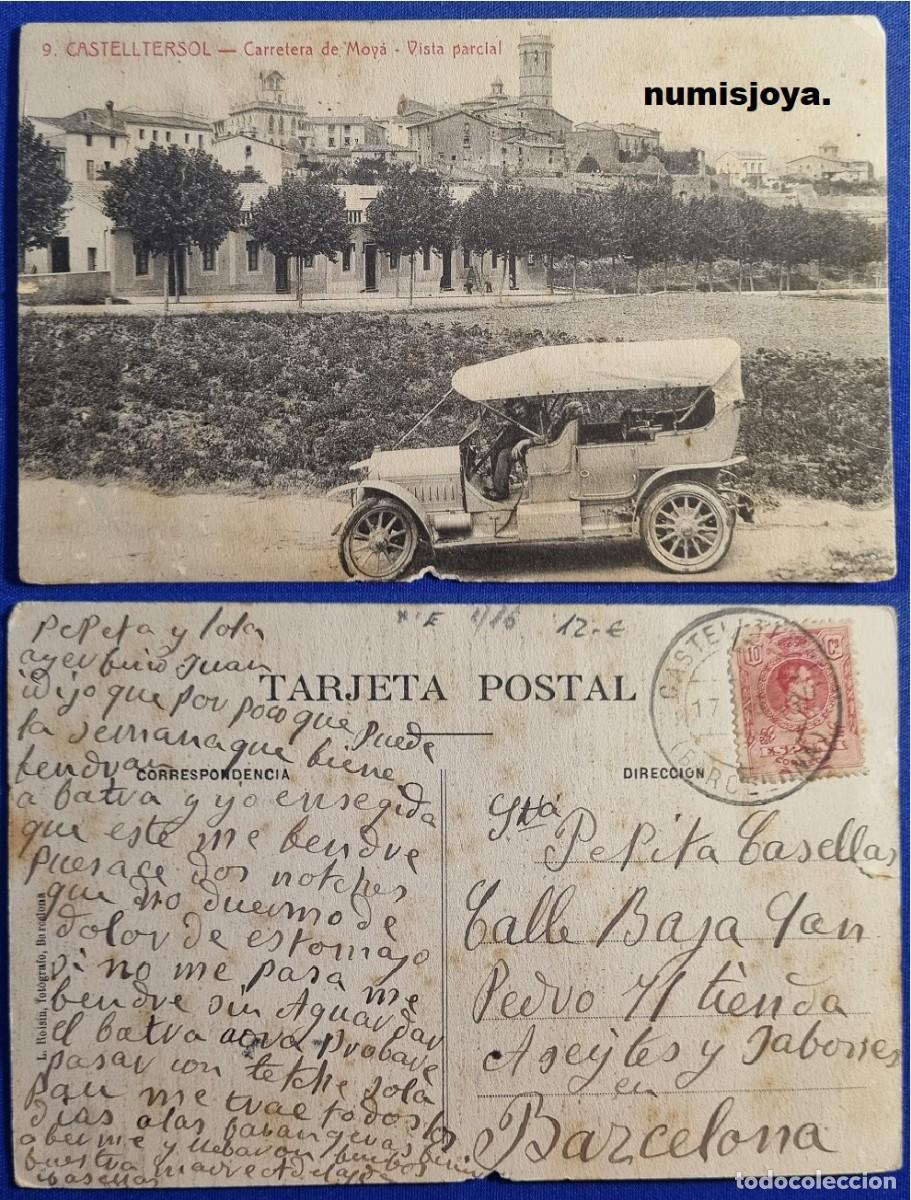 9. CASTELLTERSOL — Carretera de Moyá - Vista parcial
numisjoya.
TARJETA POSTAL
CORRESPONDENCIA
DIRECCION
10 Cs
ESPAÑA
CASTELLT
17
(BARCELONA)
12.-€
L. Roisin, fotógrafo, Barcelona
PePeta y lola
ayer bino Juan
i Dijo que por poco que Puede
la semana que biene
bendran
a batva y yo ensegida
que este me bendre
pues ace dos notches
que no duermo de
dolor de estomajo
si no me pasa me
bendre sin Aguardar
el batva aora probare
pasar con letche sola
Pau me trae todos los
dias a las
a berme y
buestra madre
Casellas
Srta
Pepita Casellas
Calle Baja San
Pedro 71 tienda
Aseytes y Jabones
en
Barcelona
todocoleccion